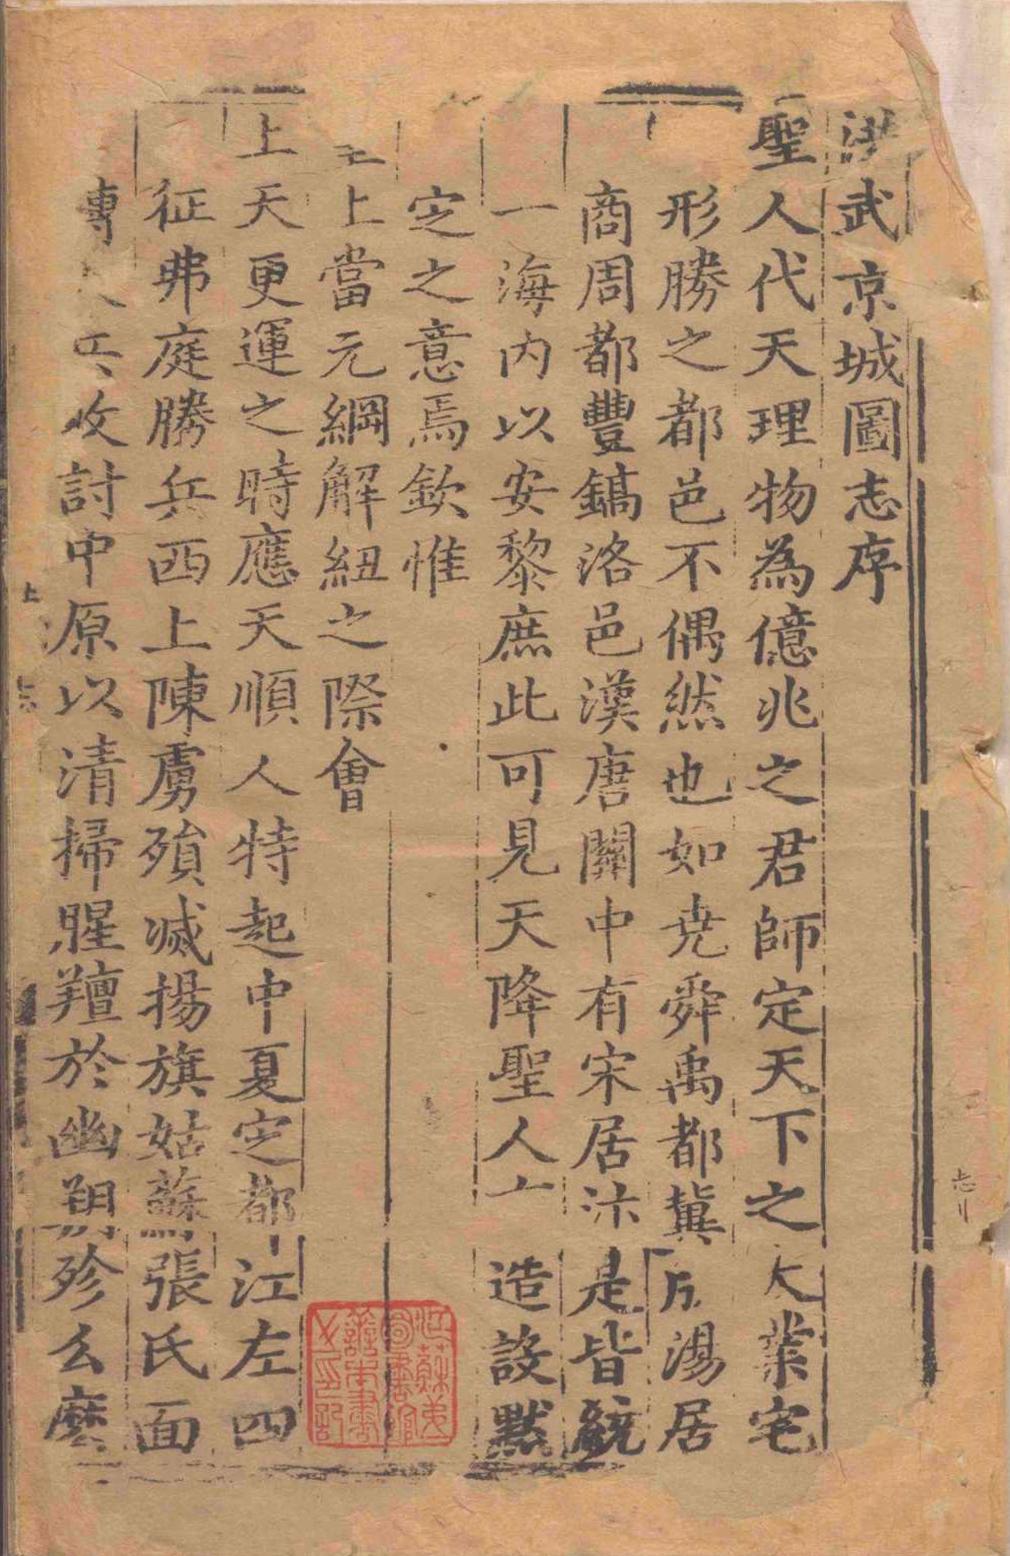 洪武京城圖志序
聖人代天理物為億兆之君師定天下之大業宅
形勝之都邑不偶然也如堯舜禹都冀湯居
商周都豐鎬洛邑漢唐關中有宋居汴是皆統
一海内以安黎庶此可見天降聖人造設默
定之意焉欽惟
上當元綱解紐之際會
上天更運之時應天順人特起中夏定都江左四
征弗庭勝兵西上陳虜殞滅揚旗姑蘇張氏面
縛收討中原以清掃腥羶於幽朔殄么麼
江蘇第
圖書館
善本書
之印記